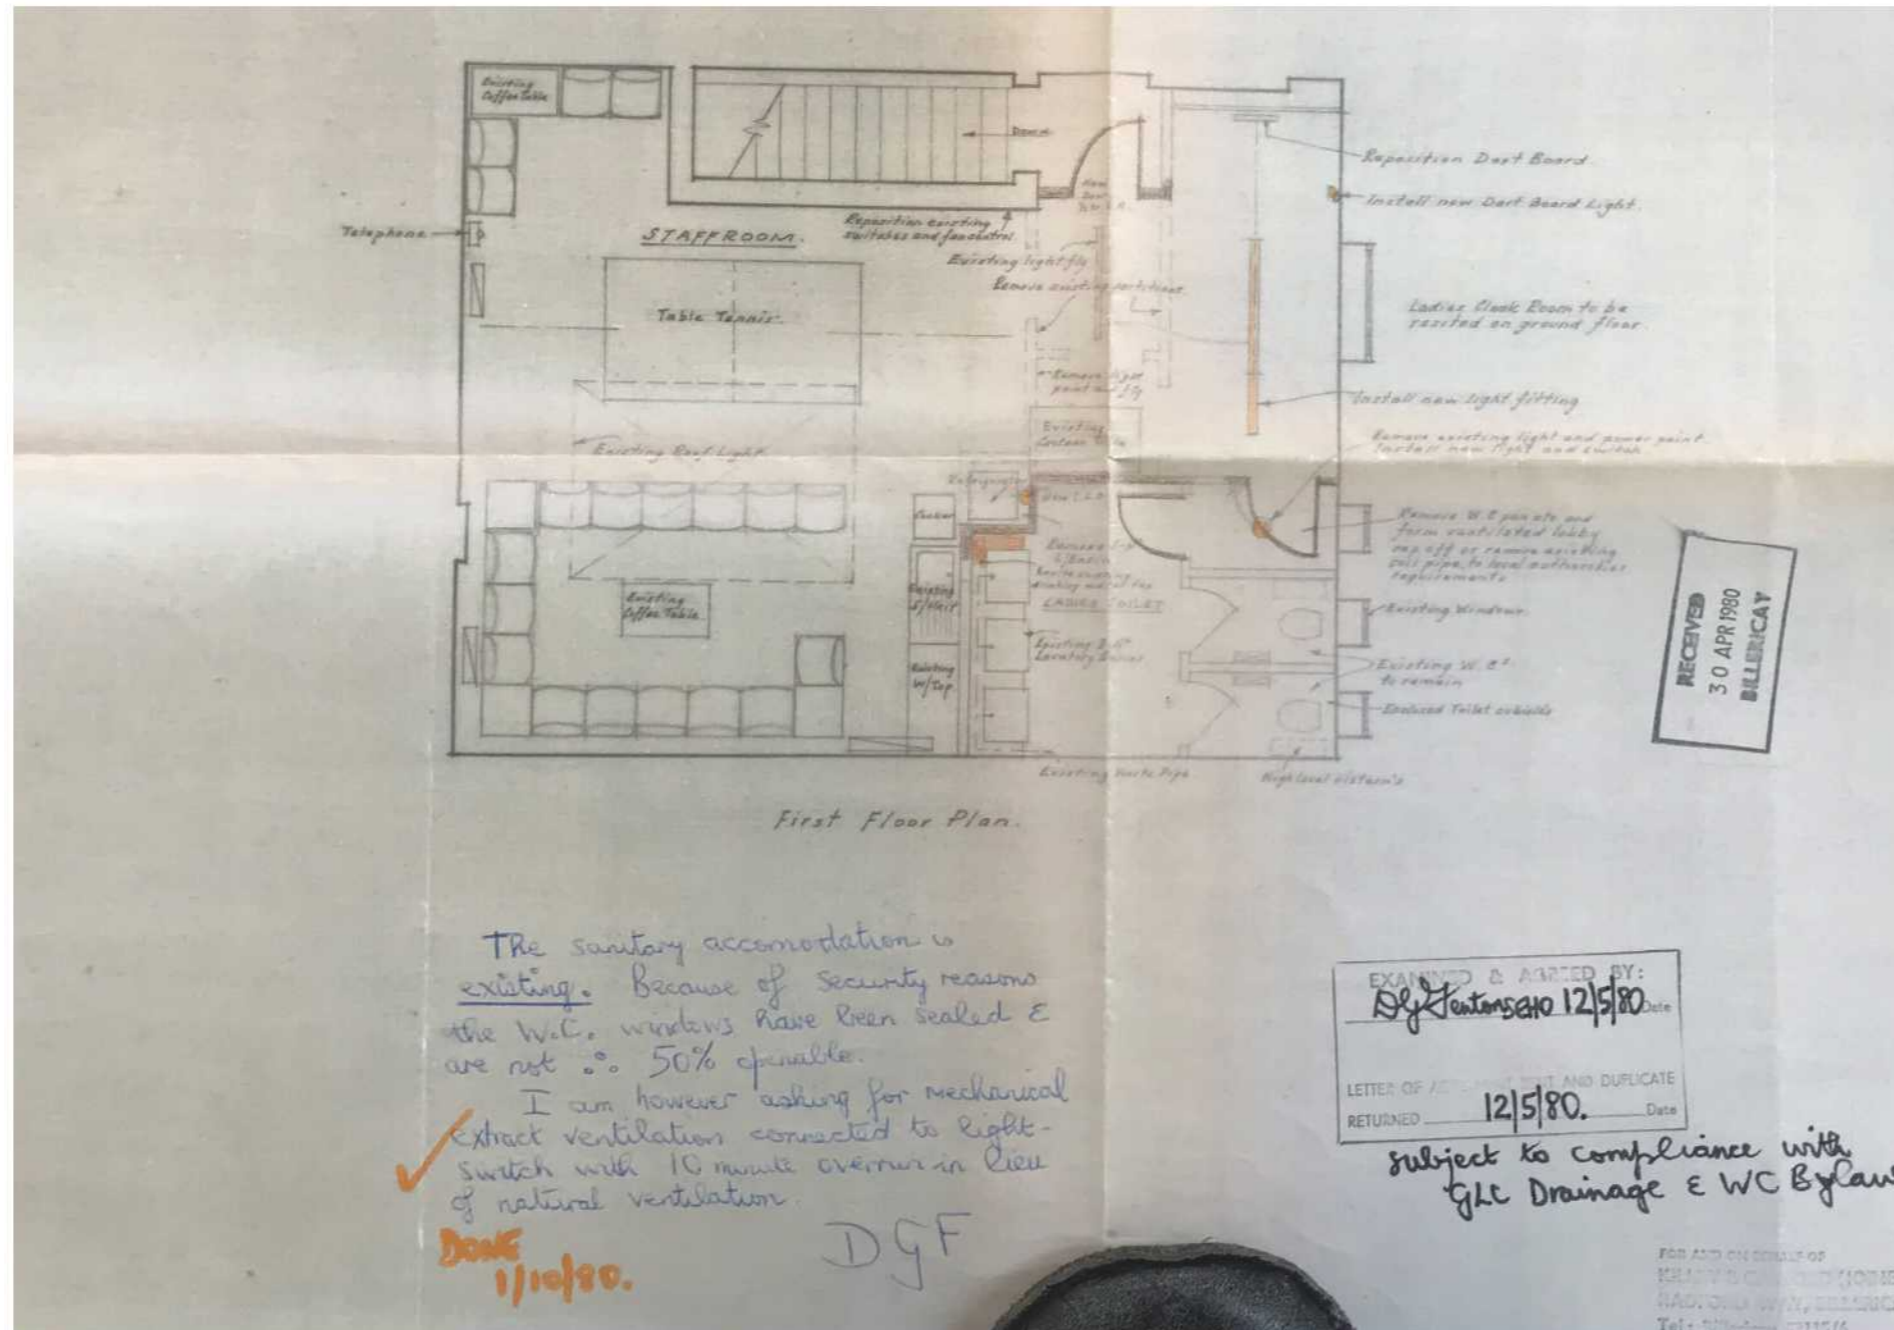 Existing
Coffee Table
Telephone
STAFFROOM.
Down
Reposition existing
switches and fan control
New
Door
Existing light ftg
Remove existing partitions
Table Tennis.
Remove light
point and ftg
Existing Roof Light
Existing
Refrigerator
Cooker
Existing
Coffee Table
Existing
Existing
W/Top
LADIES TOILET
Existing
Existing Waste Pipe
High level cistern's
Reposition Dart Board.
Install new Dart Board Light.
Ladies Cloak Room to be
resited on ground floor.
Install new light fitting
Remove existing light and power point.
Install new light and switch
Remove W.C pan etc and
form ventilated lobby
cap off or remove existing
soil pipe, to local authorities
requirements
Existing Windows.
Existing W.C.s
to remain
Enclosed Toilet cubicles
First Floor Plan.
RECEIVED
30 APR 1980
BILLERICAY
The sanitary accomodation is
existing. Because of security reasons
the W.C. windows have been sealed &
are not ∴ 50% openable.
I am however asking for mechanical
extract ventilation connected to light-
switch with 10 minute overrun in lieu
of natural ventilation.
DGF
DONE
1/10/80.
EXAMINED & AGREED BY:
12/5/80 Date
LETTER OF AND DUPLICATE
RETURNED 12/5/80. Date
subject to compliance with
GLC Drainage & WC Bylaw
FOR AND ON BEHALF OF